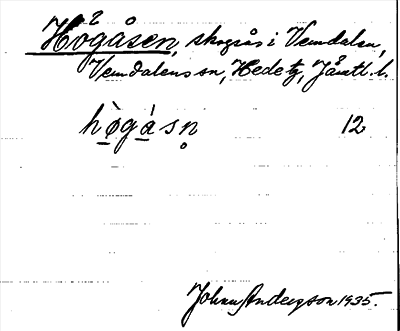 Högåsen, skogsås i Vemdalen,
Vemdalens sn, Hede tg, Jämtl. l.
hògásn̥ 12
Johan Anderson 1935.